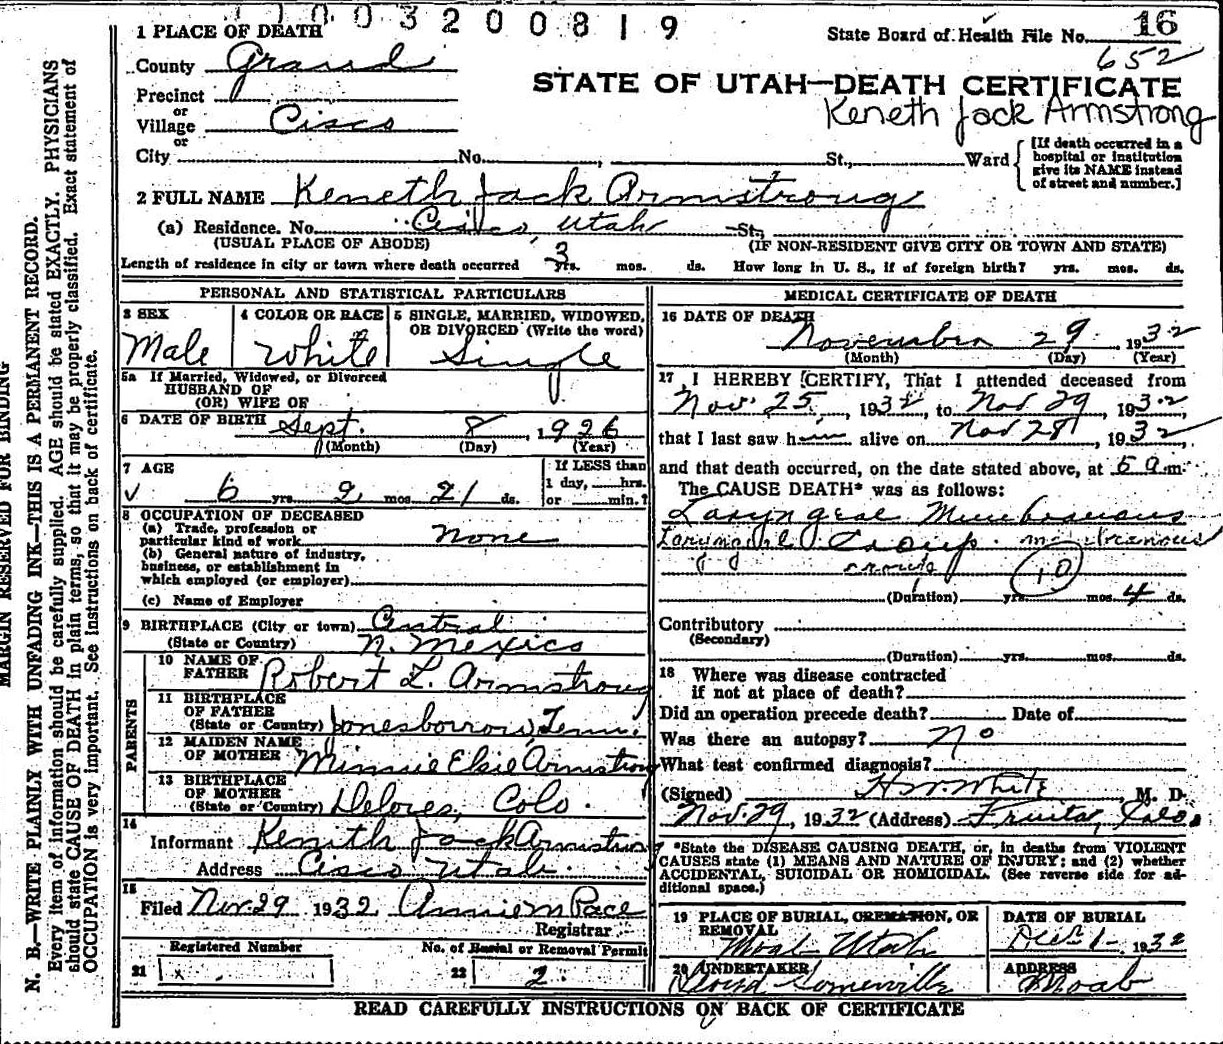 1003200819
1 PLACE OF DEATH
State Board of Health File No. 16
652
County Grand
STATE OF UTAH—DEATH CERTIFICATE
Precinct
or
Keneth Jack Armstrong
Village Cisco
or
City No. St., Ward
[If death occurred in a
hospital or institution
give its NAME instead
of street and number.]
2 FULL NAME Keneth Jack Armstrong
(a) Residence. No. Cisco, Utah St.,
(USUAL PLACE OF ABODE) (IF NON-RESIDENT GIVE CITY OR TOWN AND STATE)
Length of residence in city or town where death occurred 3 yrs. mos. ds. How long in U. S., if of foreign birth? yrs. mos. ds.
PERSONAL AND STATISTICAL PARTICULARS
3 SEX
Male
4 COLOR OR RACE
White
5 SINGLE, MARRIED, WIDOWED,
OR DIVORCED (Write the word)
Single
5a If Married, Widowed, or Divorced
HUSBAND OF
(OR) WIFE OF
6 DATE OF BIRTH Sept. 8, 1926
(Month) (Day) (Year)
7 AGE
6 yrs. 2 mos. 21 ds.
If LESS than
1 day, hrs.
or min.?
8 OCCUPATION OF DECEASED
(a) Trade, profession or
particular kind of work none
(b) General nature of industry,
business, or establishment in
which employed (or employer)
(c) Name of Employer
9 BIRTHPLACE (City or town) Central
(State or Country) N. Mexico
PARENTS
10 NAME OF
FATHER Robert L. Armstrong
11 BIRTHPLACE
OF FATHER
(State or Country) Jonesborrow, Tenn.
12 MAIDEN NAME
OF MOTHER Minnie Elsie Armstrong
13 BIRTHPLACE
OF MOTHER
(State or Country) Delores, Colo.
14
Informant Kenith Jack Armstrong
Address Cisco Utah.
15
Filed Nov. 29 1932 Annie M Pace
Registrar
Registered Number
No. of Burial or Removal Permit
21 x
22 2.
MEDICAL CERTIFICATE OF DEATH
16 DATE OF DEATH
November 29, 1932
(Month) (Day) (Year)
17 I HEREBY CERTIFY, That I attended deceased from
Nov. 25, 1932, to Nov 29, 1932,
that I last saw him alive on Nov 28, 1932,
and that death occurred, on the date stated above, at 5 a.m.
The CAUSE DEATH* was as follows:
Laryngeal Membraneous
Laryngeal Croup. membranous
croup 10
(Duration) yrs. mos. 4 ds.
Contributory
(Secondary)
(Duration) yrs. mos. ds.
18 Where was disease contracted
if not at place of death?
Did an operation precede death? Date of
Was there an autopsy? No
What test confirmed diagnosis?
(Signed) H.W. White, M. D.
Nov. 29, 1932 (Address) Fruita, Colo.
*State the DISEASE CAUSING DEATH, or, in deaths from VIOLENT
CAUSES state (1) MEANS AND NATURE OF INJURY; and (2) whether
ACCIDENTAL, SUICIDAL OR HOMICIDAL. (See reverse side for ad-
ditional space.)
19 PLACE OF BURIAL, CREMATION, OR
REMOVAL
Moab Utah
DATE OF BURIAL
Dec 1 - 1932
20 UNDERTAKER
Lloyd Somerville
ADDRESS
Moab
READ CAREFULLY INSTRUCTIONS ON BACK OF CERTIFICATE
MARGIN RESERVED FOR BINDING
N. B.—WRITE PLAINLY WITH UNFADING INK—THIS IS A PERMANENT RECORD.
Every item of information should be carefully supplied. AGE should be stated EXACTLY. PHYSICIANS
should state CAUSE OF DEATH in plain terms, so that it may be properly classified. Exact statement of
OCCUPATION is very important. See instructions on back of certificate.